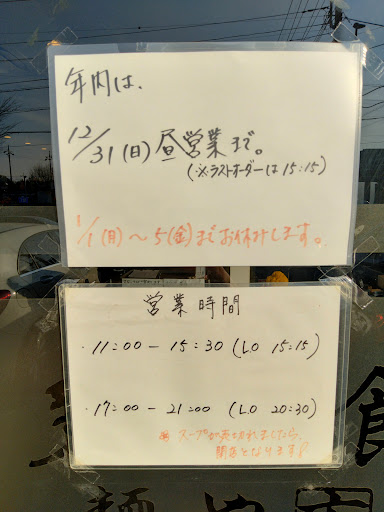 年内は、
12/31(日)昼営業まで。
(※ラストオーダーは15:15)
1/1(月)～5(金)までお休みします。
営業時間
・11:00－15:30(LO 15:15)
・17:00－21:00 (LO 20:30)
※スープが売り切れましたら、
閉店となります